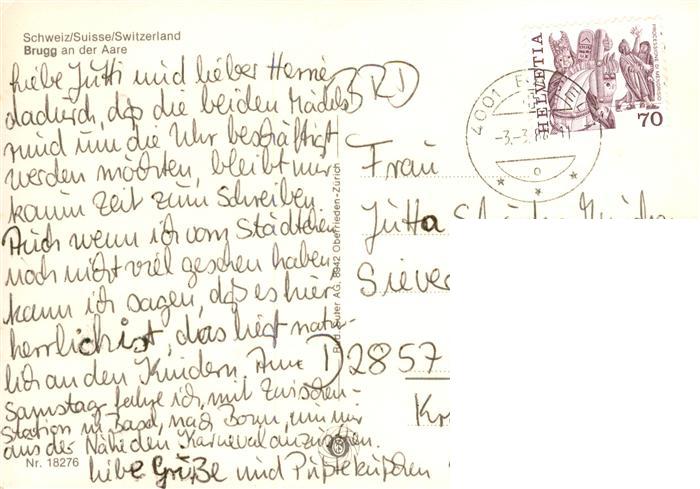 Schweiz/Suisse/Switzerland
Brugg an der Aare
Liebe Jutti und lieber Henne
dadurch, daß die beiden Mädels
rund um die Uhr beschäftigt
werden möchten, bleibt mir
kaum Zeit zum Schreiben.
Auch wenn ich vom Städtchen
noch nicht viel gesehen habe,
kann ich sagen, daß es hier
herrlich ist, das liegt natür-
lich an den Kindern. Am
Samstag fahre ich, mit Zwischen-
Station in Basel, nach Bonn, um mir
aus der Nähe den Karneval anzusehen.
Liebe Grüße und
Nr. 18276
BRD
Frau
Jutta
D 2857
AG, 8942 Oberrieden-Zürich
HELVETIA
70
4001